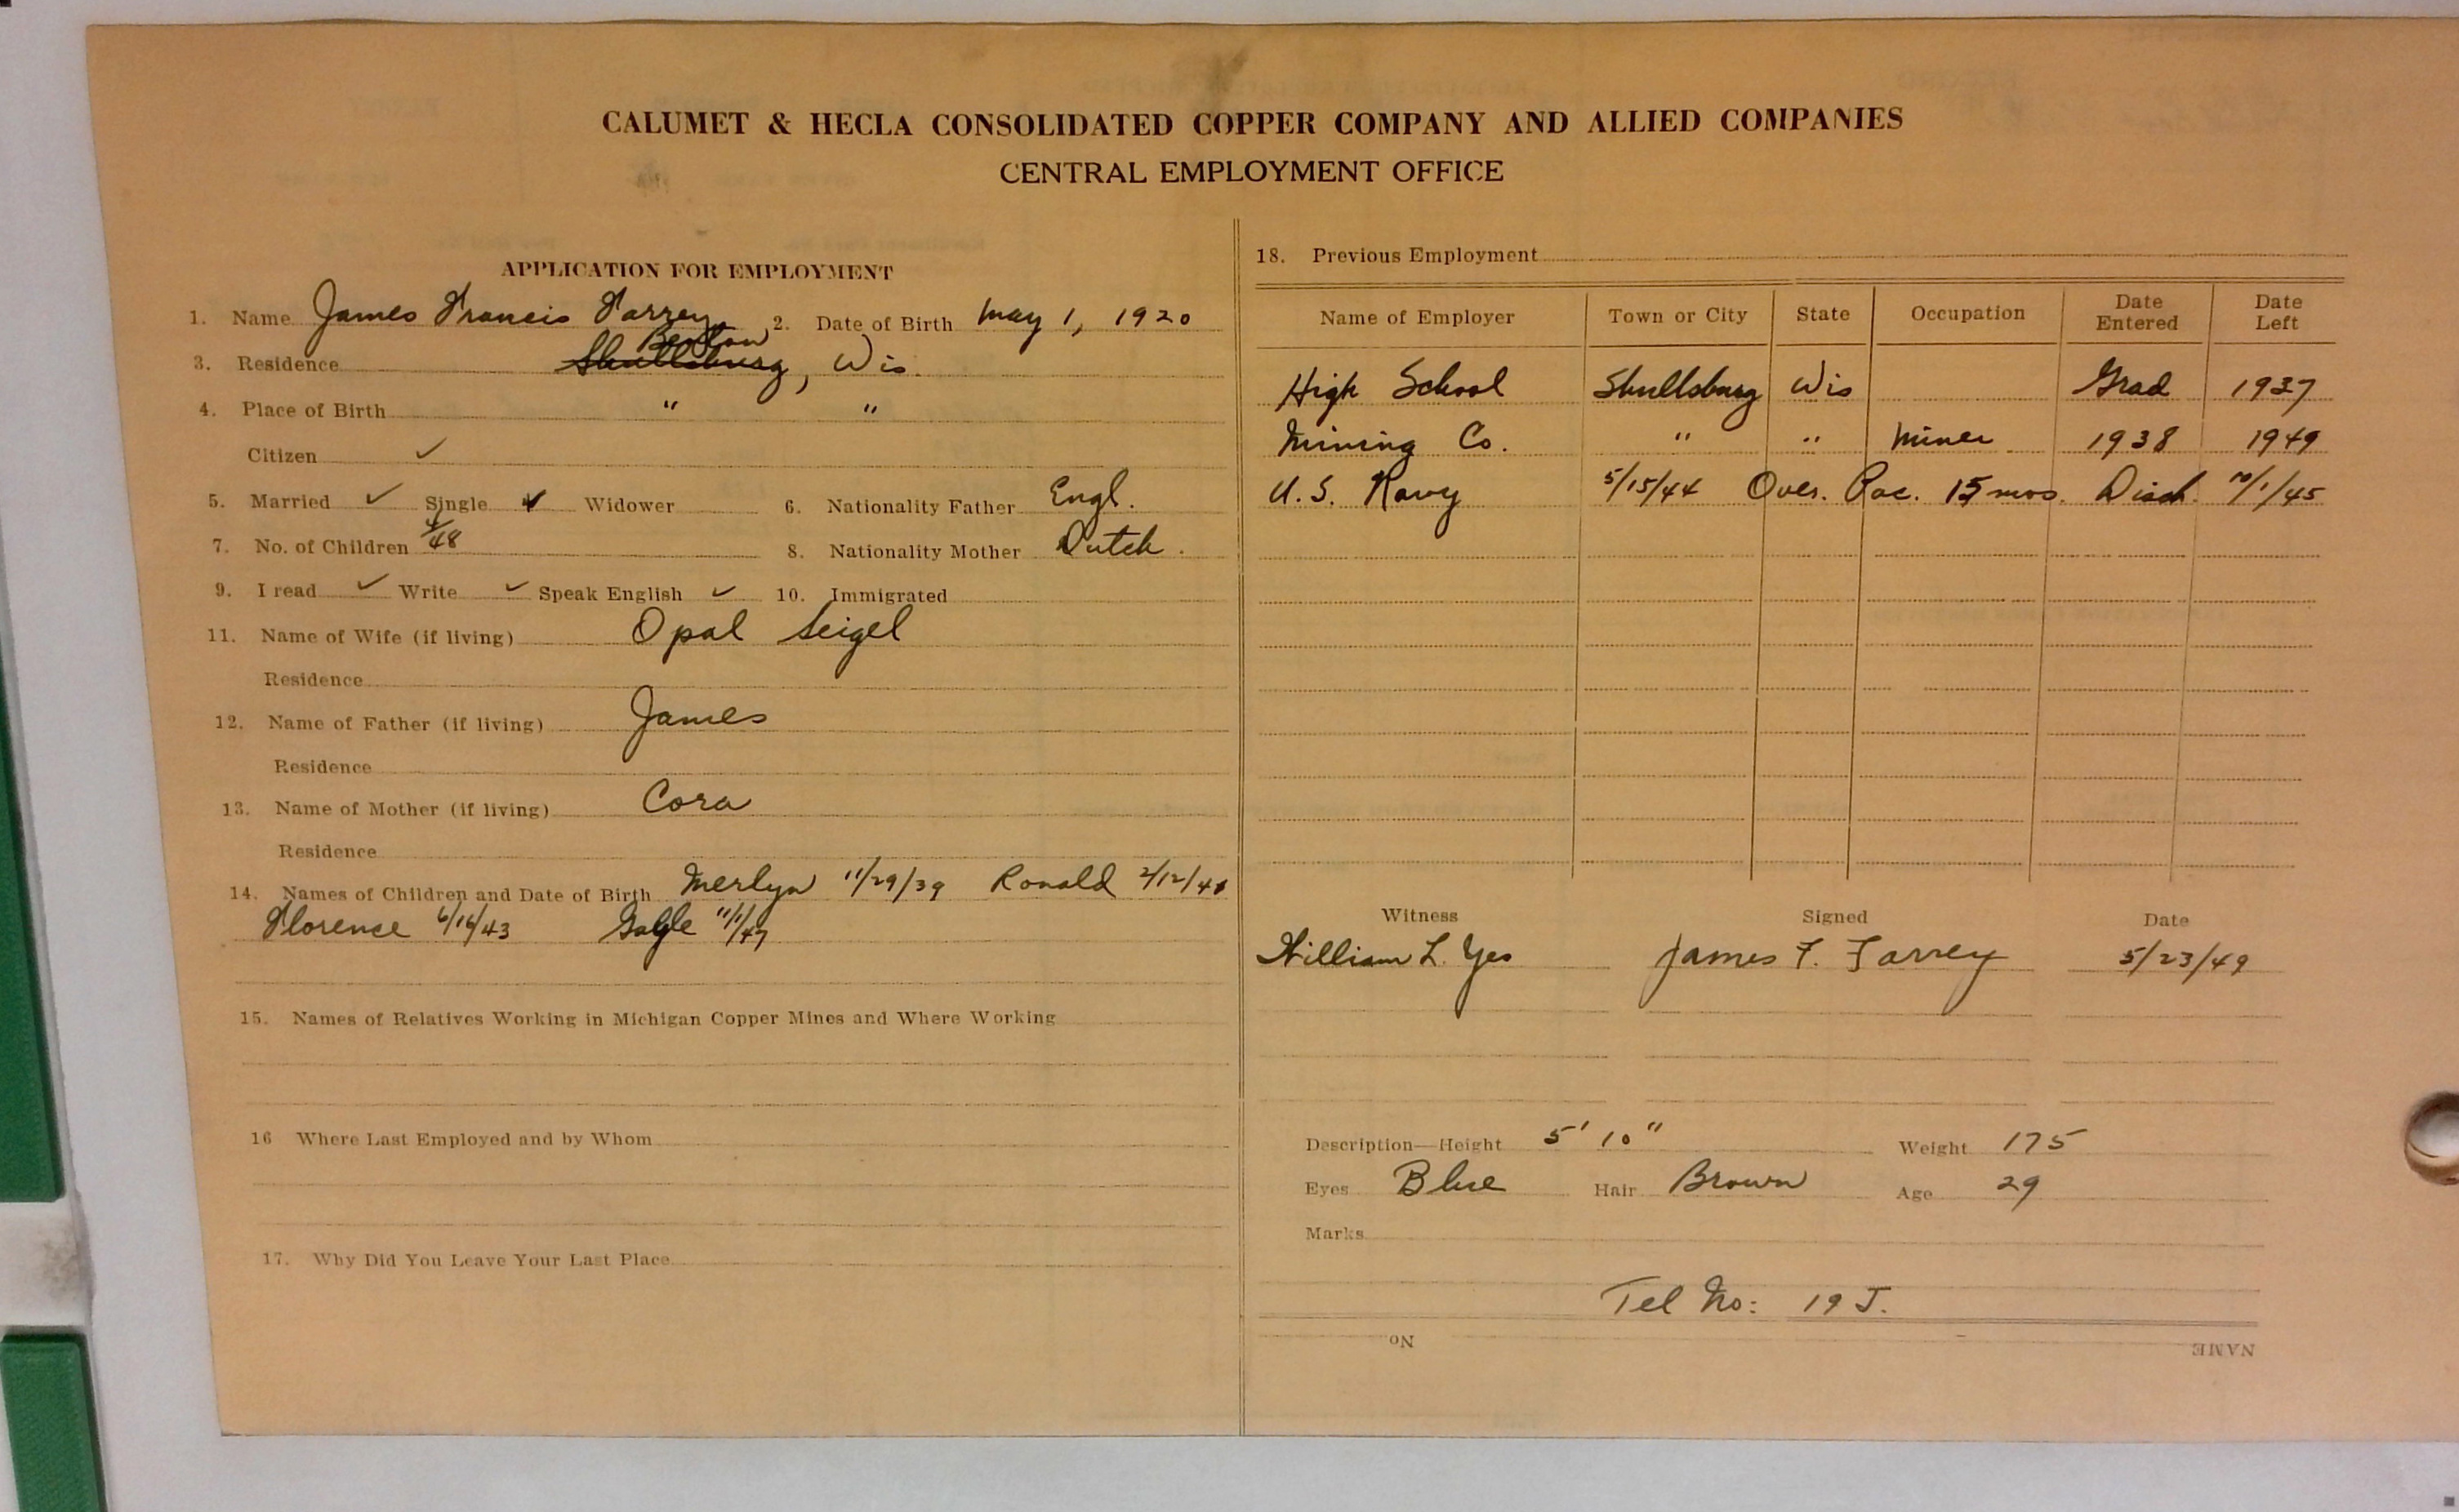 CALUMET & HECLA CONSOLIDATED COPPER COMPANY AND ALLIED COMPANIES
CENTRAL EMPLOYMENT OFFICE
APPLICATION FOR EMPLOYMENT
1. Name James Francis Farrey 2. Date of Birth May 1, 1920
Benton
3. Residence Shullsburg, Wis.
4. Place of Birth " "
Citizen ✓
5. Married ✓ Single Widower 6. Nationality Father Engl.
7. No. of Children 8. Nationality Mother Dutch.
9. I read ✓ Write ✓ Speak English ✓ 10. Immigrated
11. Name of Wife (if living) Opal Seigel
Residence
12. Name of Father (if living) James
Residence
13. Name of Mother (if living) Cora
Residence
14. Names of Children and Date of Birth Merlyn 11/29/39 Ronald
Florence 11/1/47
15. Names of Relatives Working in Michigan Copper Mines and Where Working
16 Where Last Employed and by Whom
17. Why Did You Leave Your Last Place
18. Previous Employment
Name of Employer Town or City State Occupation Date Entered Date Left
High School Shullsburg Wis Grad 1937
Mining Co. " " Miner 1938 1949
U.S. Navy 5/15/44 Over. Pac. 15 mos. Disch. 10/1/45
Witness Signed Date
William L. James F. Farrey 5/23/49
Description—Height 5' 10" Weight 175
Eyes Blue Hair Brown Age 29
Marks
Tel No: 19 J.
No. NAME